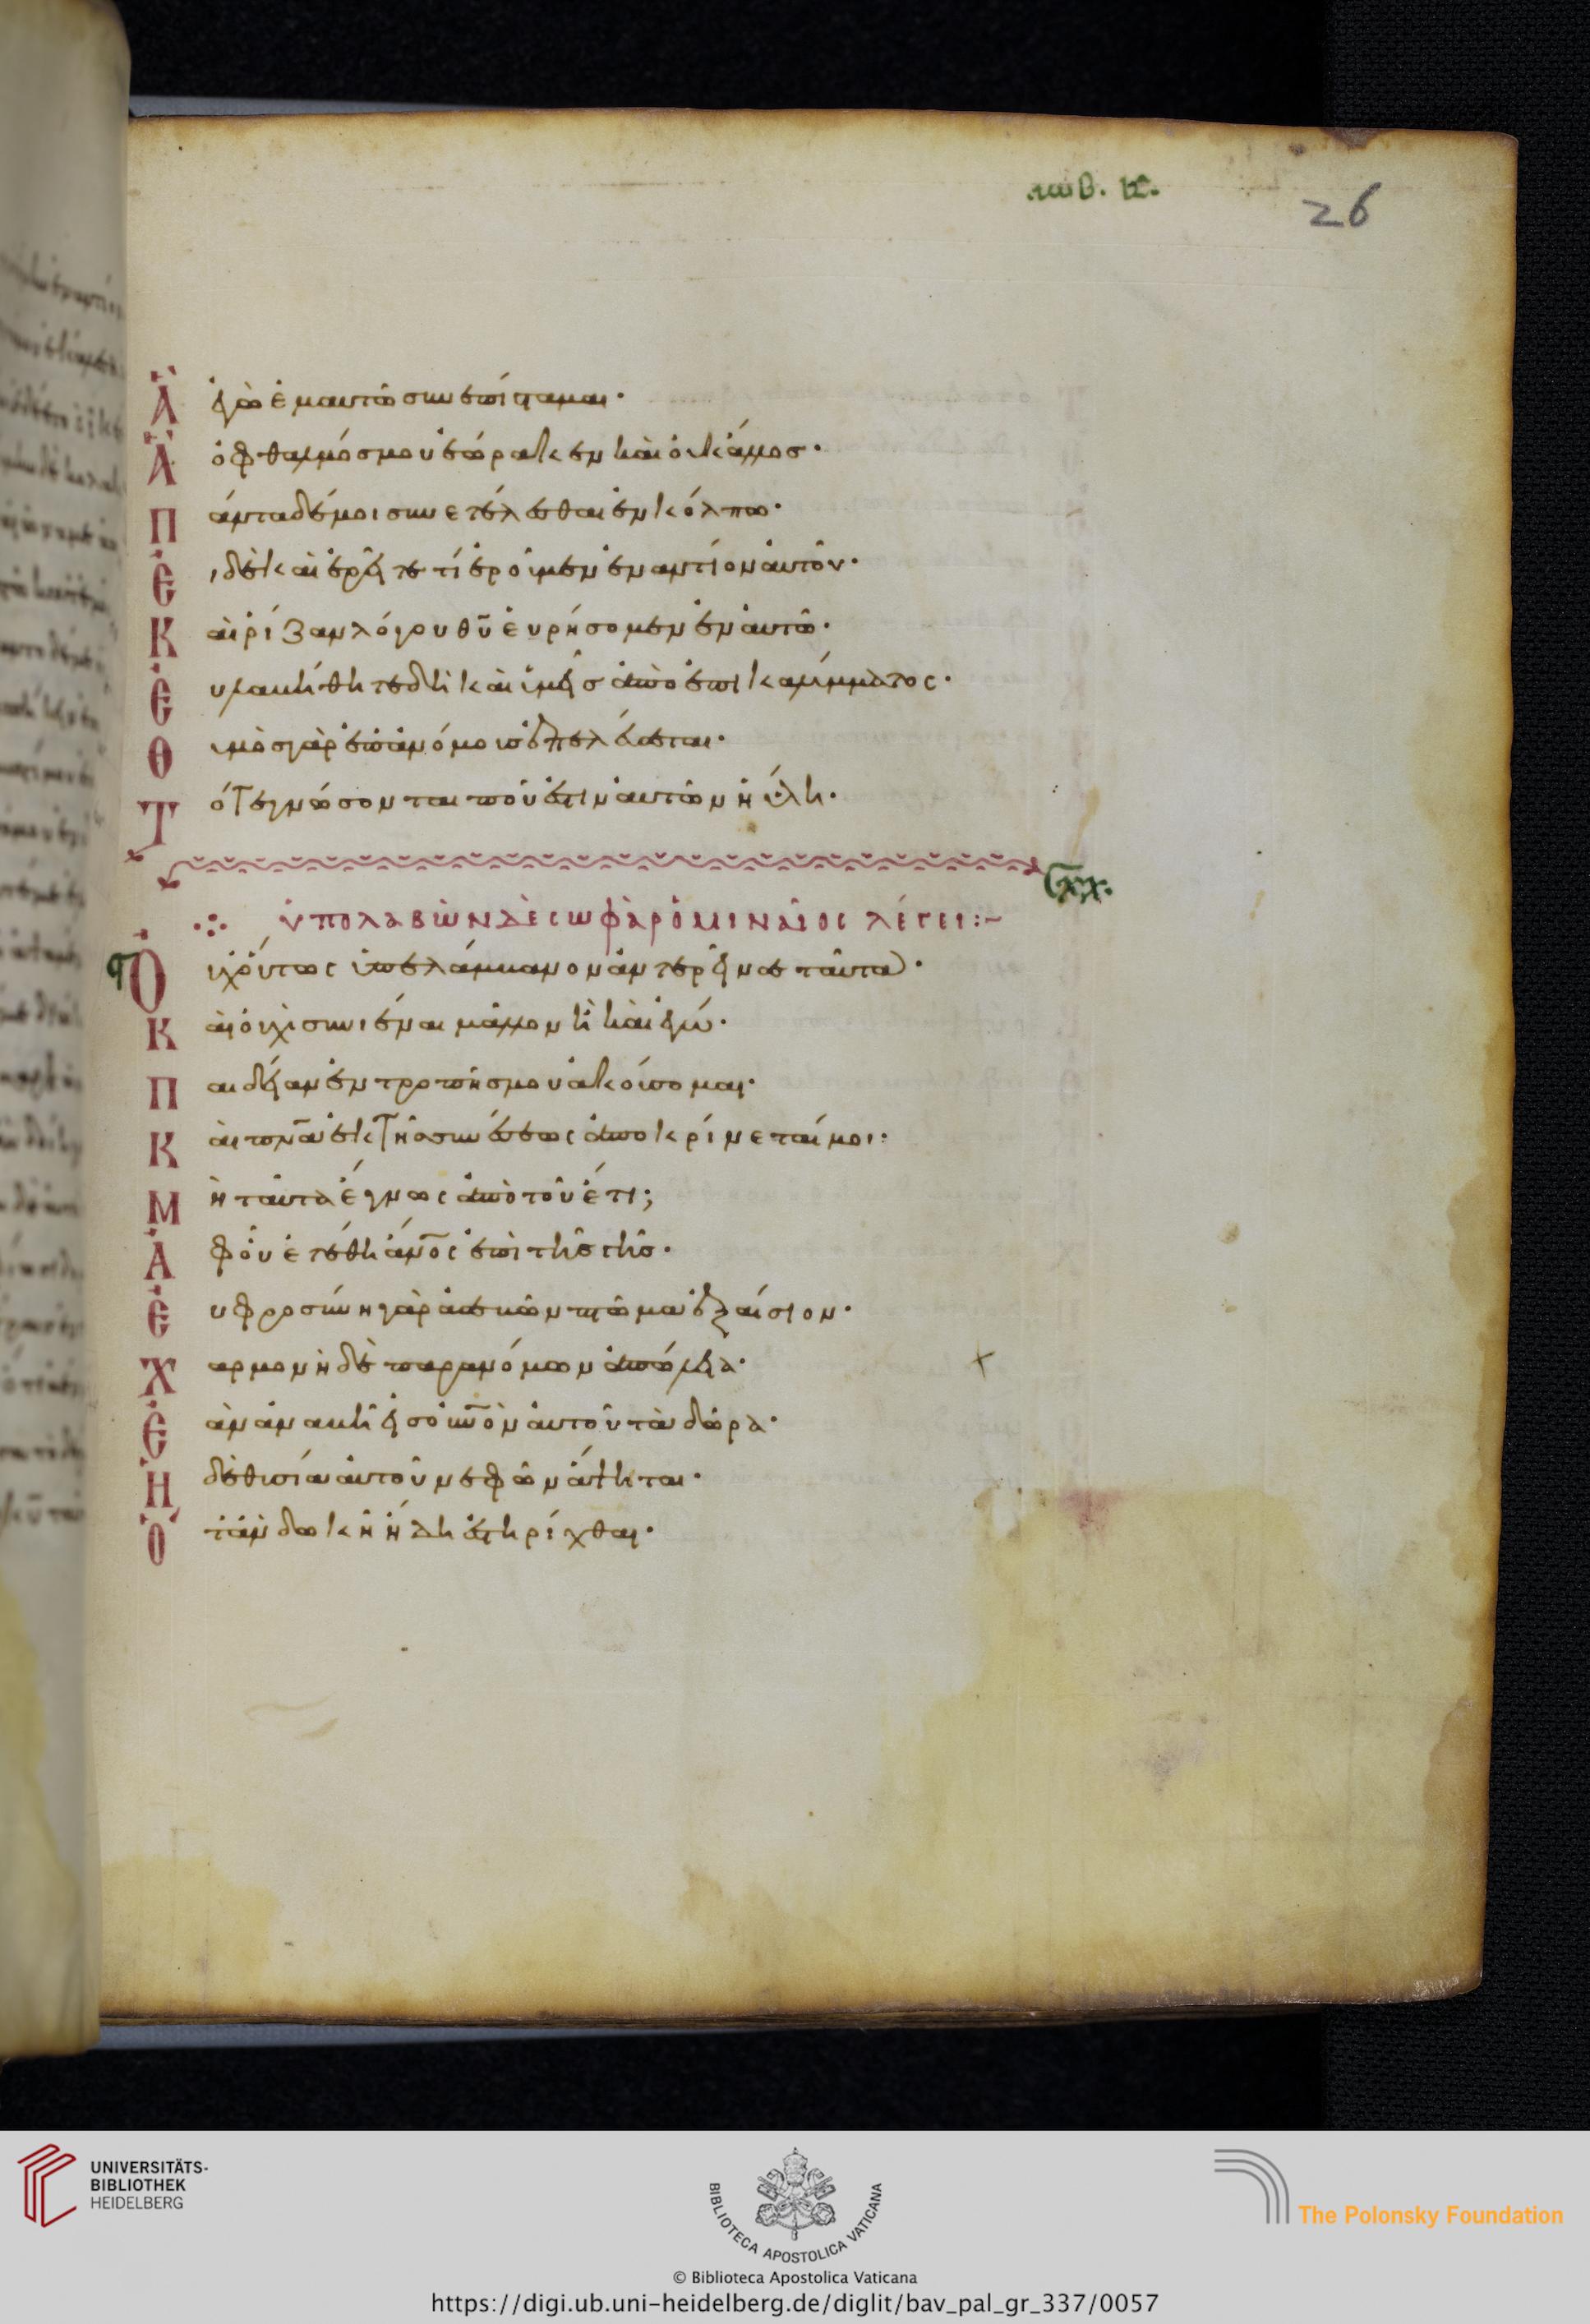 ιωβ. κ.
26
Ἃ ἐγὼ ἐμαυτῶ συνεπίσταμαι·
Ἃ ὁ ὀφθαλμόσ μου ἑώρακεν καὶ οὐκ ἄλλος·
Πάντα δέ μοι συνετέλεσθαι ἐν κόλπω·
Ἐὶ δὲ καὶ ἐρεῖτε τί ἐροῦμεν ἐναντίον αὐτοῦ·
Καὶ ῥίζαν λόγου θυ εὑρήσομεν ἐν αὐτῶ·
Εὐλαβήθητε δὴ καὶ ὑμεῖσ ἀπὸ ἐπικαλύμματος·
Θυμὸσ γὰρ ἐπ' ἀνόμουσ ἐξελεύσεται·
Τότε γνώσονται ποῦ ἐστιν αὐτῶν ἡ ὕλη·
Cap xx.
ὑπολαβὼν δὲ σωφὰρ ὁ μιναῖος λέγει:~
Οὐχ οὕτως ὑπελάμβανον ἀντερεῖν σε ταῦτα·
Καὶ οὐχὶ συνίεναι μᾶλλον ἢ καὶ ἐγώ·
Παιδείαν ἐντροπῆσ μου ἀκούσομαι·
Καὶ πνα ἐκ τῆσ συνέσεως ἀποκρίνεταί μοι:
Μὴ ταῦτα ἔγνως ἀπὸ τοῦ ἔτι;
Ἀφ' οὗ ἐτέθη ἄνος ἐπὶ τῆσ γῆσ·
Εὐφροσύνη γὰρ ἀσεβῶν πτῶμα ἐξαίσιον·
Χαρμονὴ δὲ παρανόμων ἀπώλεια·
Ἐὰν ἀναβῆ εἰσ ουνον αὐτοῦ τὰ δῶρα·
Ἡ δὲ θυσία αὐτοῦ νεφῶν ἅψηται·
Ὅταν δοκῆ ἤδη ἐστηρίχθαι·
UNIVERSITÄTS-
BIBLIOTHEK
HEIDELBERG
BIBLIOTECA APOSTOLICA VATICANA
The Polonsky Foundation
© Biblioteca Apostolica Vaticana
https://digi.ub.uni-heidelberg.de/diglit/bav_pal_gr_337/0057